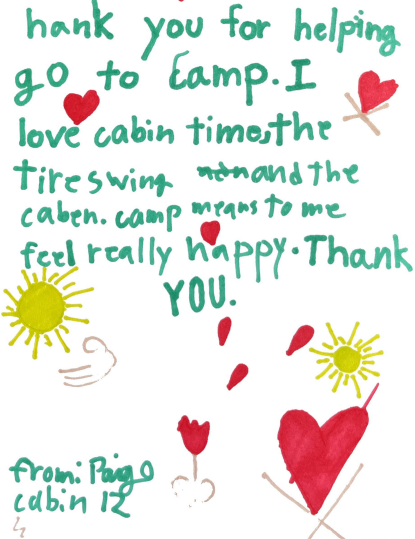 hank you for helping
go to Camp. I
love cabin time, the
tire swing and the
caben. camp means to me
feel really happy. Thank
YOU.
from: Paige
cabin 12